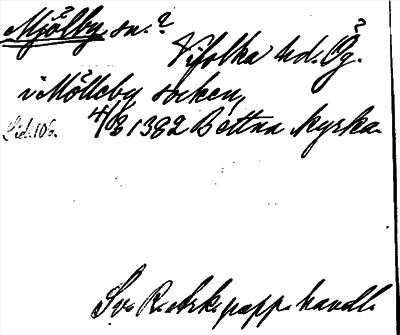 Mjölby sn.?
Vifolka hd. Ög.?
i Mölleby socken,
Lid. 106. 4/6 1382 Bettna kyrka.
Sv. R. Ark. papp. handl.